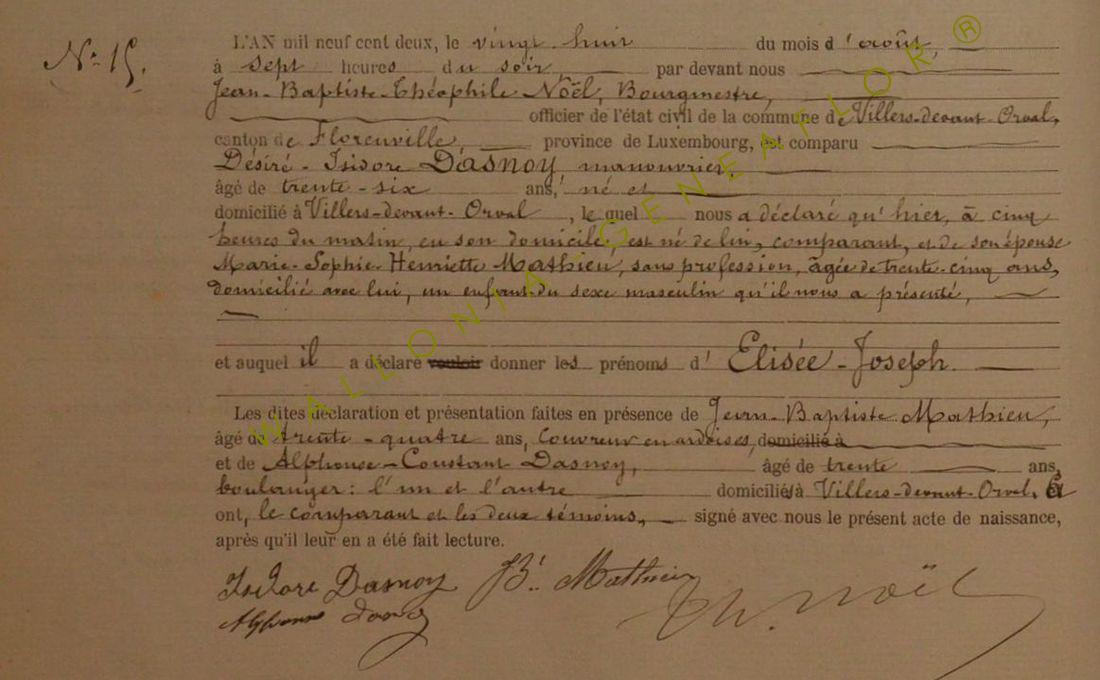 N° 15.
L'AN mil neuf cent deux, le vingt-huit du mois d'août,
à sept heures du soir par devant nous
Jean-Baptiste-Théophile Noël, Bourgmestre,
officier de l'état civil de la commune de Villers-devant-Orval,
canton de Florenville province de Luxembourg, est comparu
Désiré-Isidore Dasnoy manouvrier
âgé de trente-six ans, né et
domicilié à Villers-devant-Orval, le quel nous a déclaré qu'hier, à cinq
heures du matin, en son domicile, est né de lui, comparant, et de son épouse
Marie-Sophie-Henriette Mathieu, sans profession, âgée de trente-cinq ans,
domicilié avec lui, un enfant du sexe masculin qu'il nous a présenté,
et auquel il a déclaré vouloir donner les prénoms d'Elisée-Joseph.
Les dites déclaration et présentation faites en présence de Jean-Baptiste Mathieu,
âgé de trente-quatre ans, couvreur en ardoises, domicilié à
et de Alphonse-Constant Dasnoy, âgé de trente ans,
boulanger: l'un et l'autre domiciliés à Villers-devant-Orval. Et
ont, le comparant et les deux témoins, signé avec nous le présent acte de naissance,
après qu'il leur en a été fait lecture.
Isidore Dasnoy Bte Mathieu
Alphonse Dasnoy Th. Noël
WALLONIA-GENEAFLOR ®